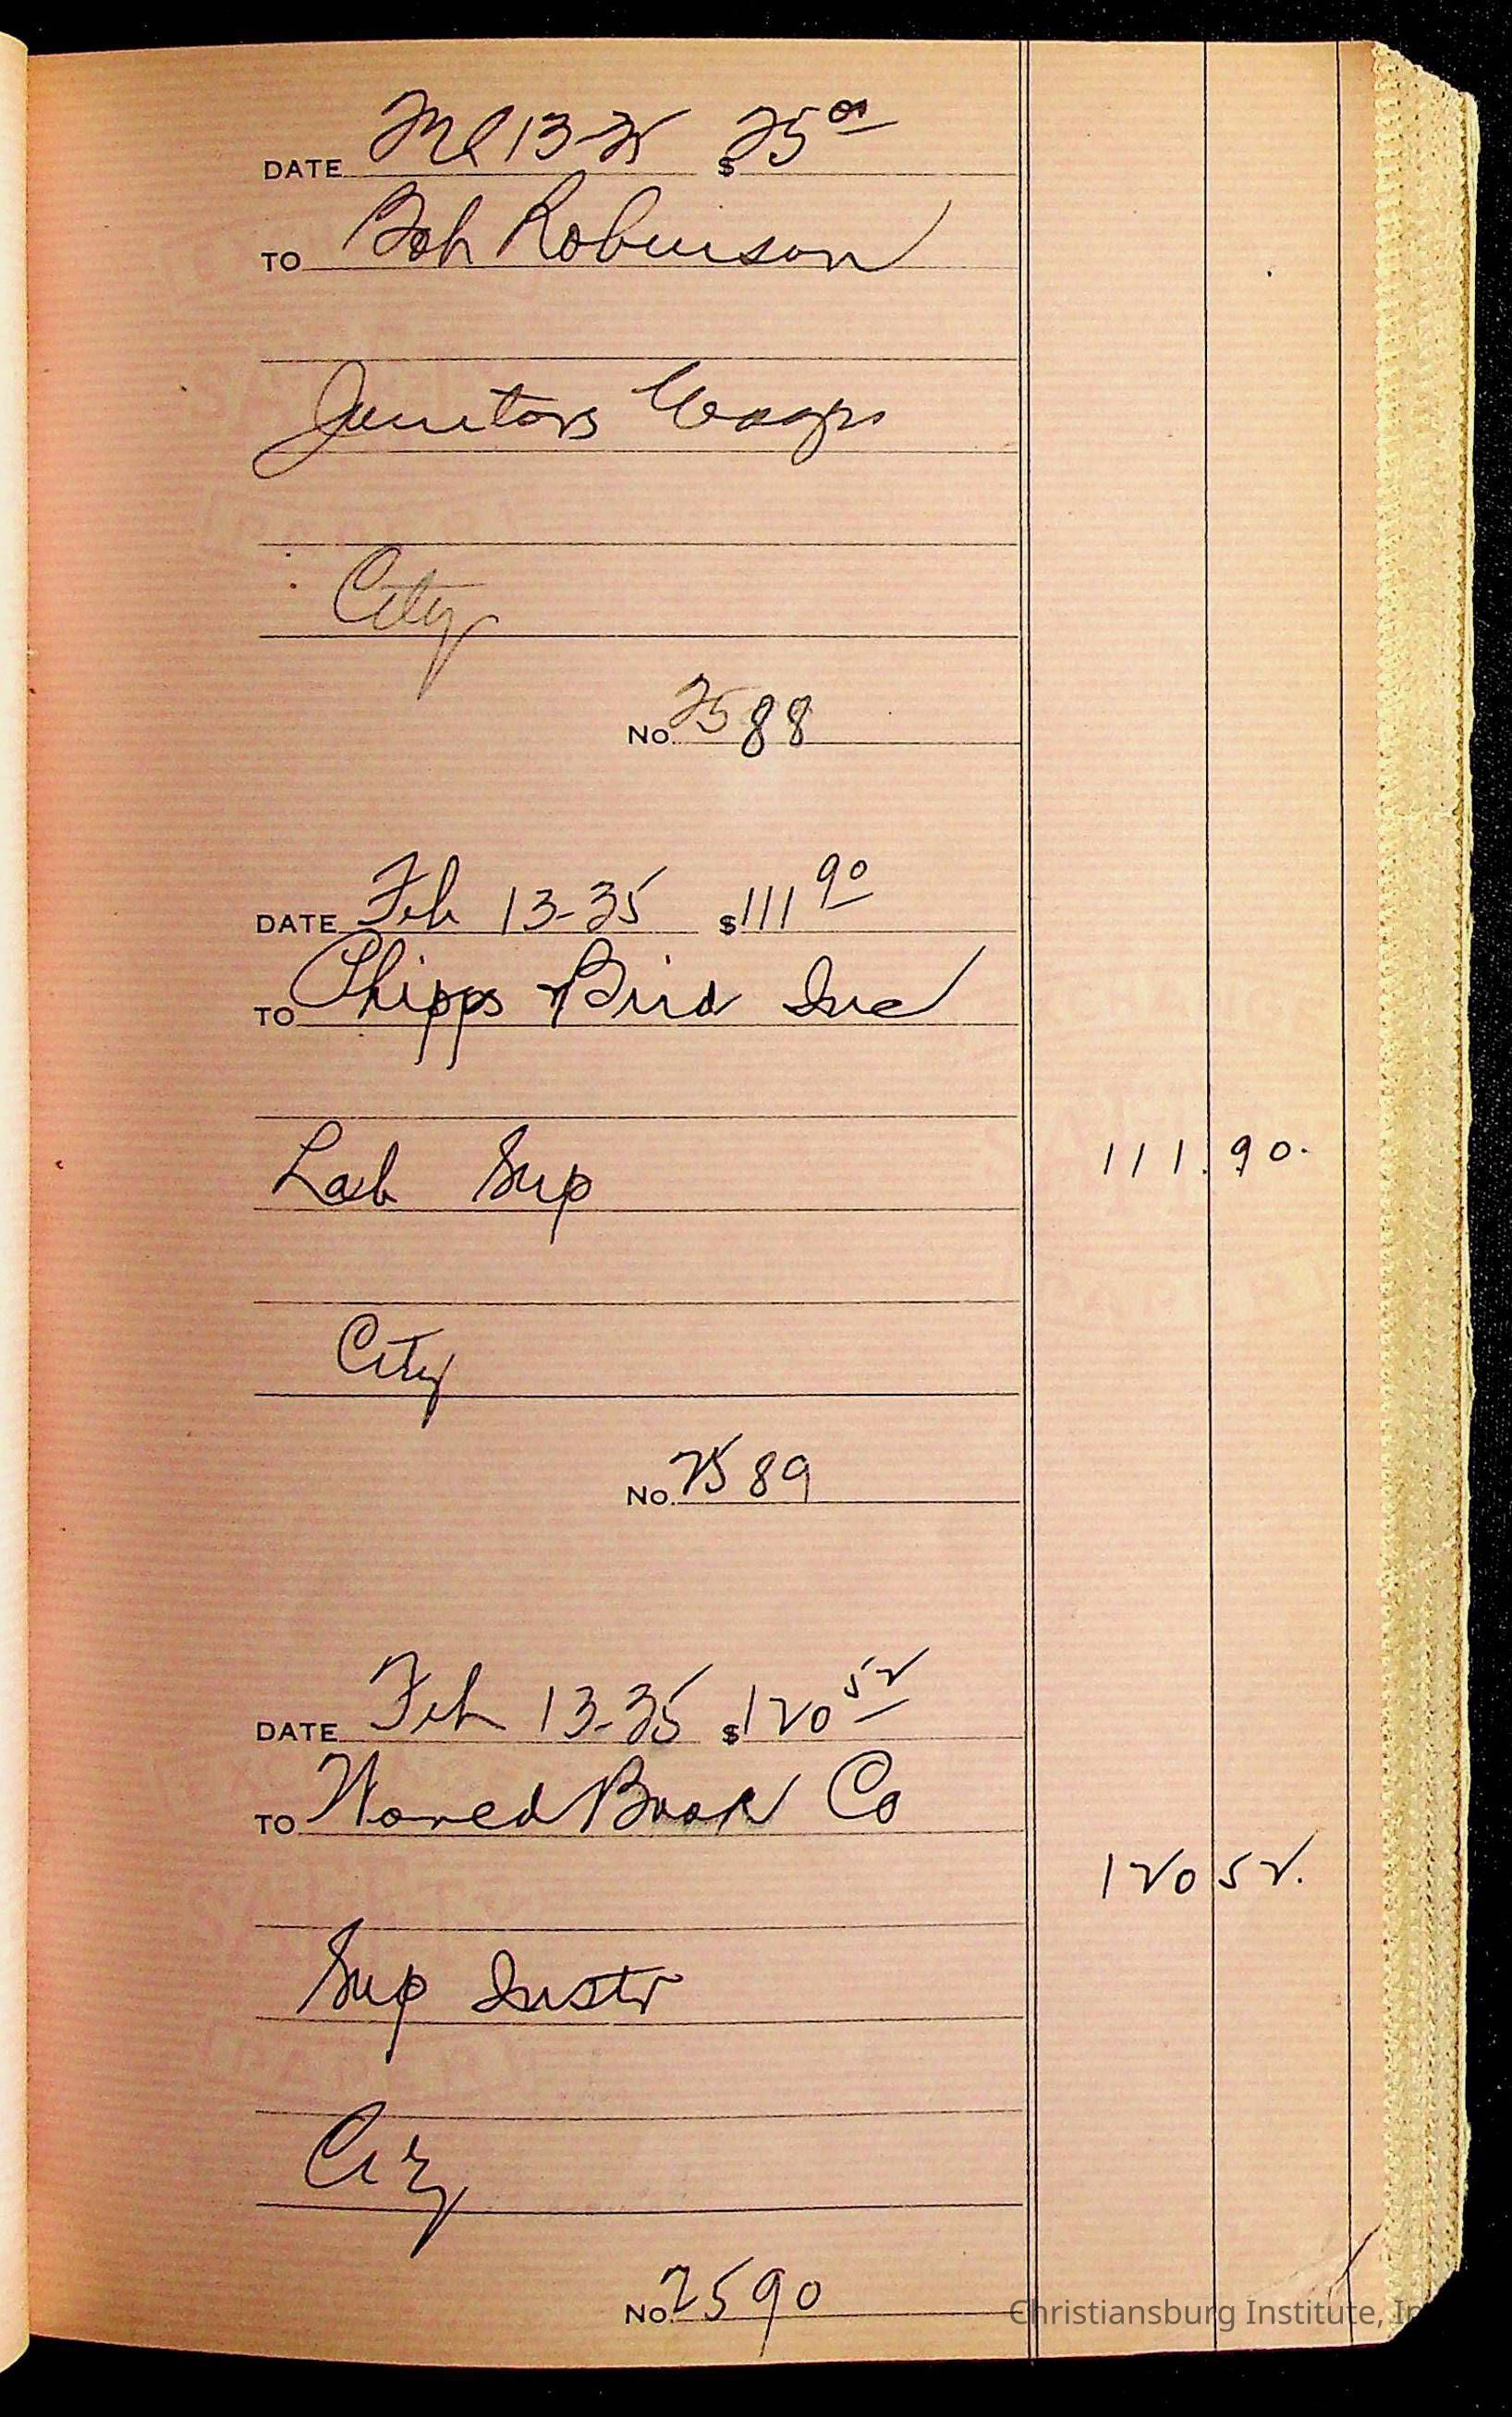 DATE 13-35 $ 25 00
TO Bob Robinson
Janitors Wages
City
No. 2588
DATE Feb 13-35 $ 111 90
TO Phipps & Bird Inc
Lab Sup
111.90.
City
No. 2589
DATE Feb 13-35 $ 120 52
TO World Book Co
120 52.
Sup Instr
City
No. 2590
Christiansburg Institute, In